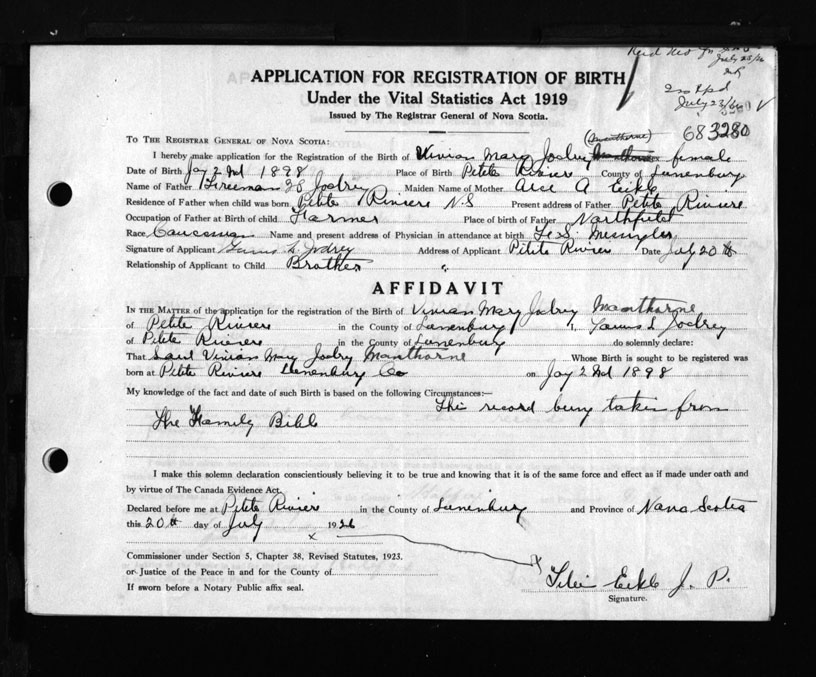 July 23/26
APPLICATION FOR REGISTRATION OF BIRTH
Under the Vital Statistics Act 1919
July 23/26
Issued by The Registrar General of Nova Scotia.
(Manthorne) 683280
TO THE REGISTRAR GENERAL OF NOVA SCOTIA:
I hereby make application for the Registration of the Birth of Vivian Mary Joudrey female
Date of Birth 2nd 1898 Place of Birth Petite Riviere County of Lunenburg
Name of Father Maiden Name of Mother A
Residence of Father when child was born Petite Riviere N.S Present address of Father Petite Riviere
Occupation of Father at Birth of child Farmer Place of birth of Father Northfield
Race Name and present address of Physician in attendance at birth
Signature of Applicant Address of Applicant Petite Riviere Date July 20th
Relationship of Applicant to Child Brother
AFFIDAVIT
IN THE MATTER of the application for the registration of the Birth of Vivian Mary Manthorne
of Petite Riviere in the County of Lunenburg I,
of Petite Riviere in the County of Lunenburg do solemnly declare:
That Said Vivian May Manthorne Whose Birth is sought to be registered was
born at Petite Riviere Lunenburg Co on 2nd 1898
My knowledge of the fact and date of such Birth is based on the following Circumstances:—
This record being taken from
The Family Bible
I make this solemn declaration conscientiously believing it to be true and knowing that it is of the same force and effect as if made under oath and
by virtue of The Canada Evidence Act.
Declared before me at Petite Riviere in the County of Lunenburg and Province of Nova Scotia
this 20th day of July 1926
x x
Commissioner under Section 5, Chapter 38, Revised Statutes, 1923.
or Justice of the Peace in and for the County of
J. P.
If sworn before a Notary Public affix seal.
Signature.